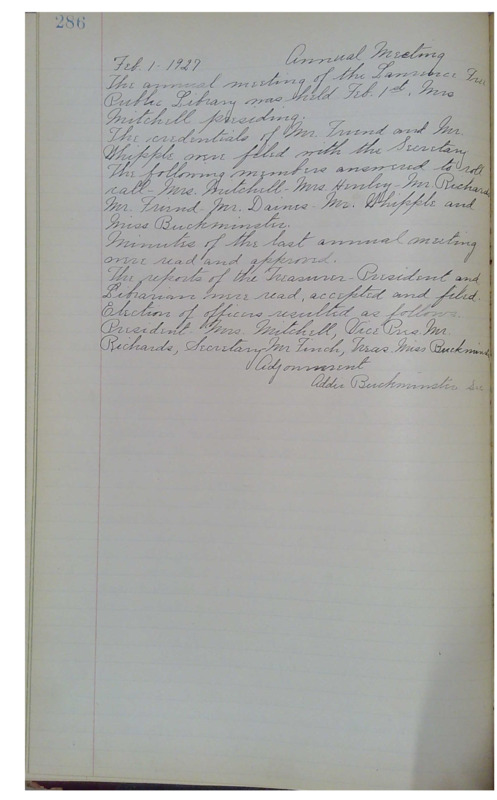 286
Feb. 1- 1927 Annual Meeting
The annual meeting of the Lawrence Free
Public Library was held Feb. 1st, Mrs
Mitchell presiding.
The credentials of Mr. Friend and Mr.
Whipple were filed with the Secretary
The following members answered to roll
call- Mrs. Mitchell- Mrs Henley- Mr. Richards
Mr. Friend- Mr. Daines- Mr. Whipple and
Miss Buckminster.
Minutes of the last annual meeting
were read and approved.
The reports of the Treasurer- President and
Librarian were read, accepted and filed.
Election of officers resulted as follows.
President- Mrs. Mitchell, Vice Pres. Mr.
Richards, Secretary Mr Finch, Treas. Miss Buckmins
Adjournment
Addie Buckminster Sec